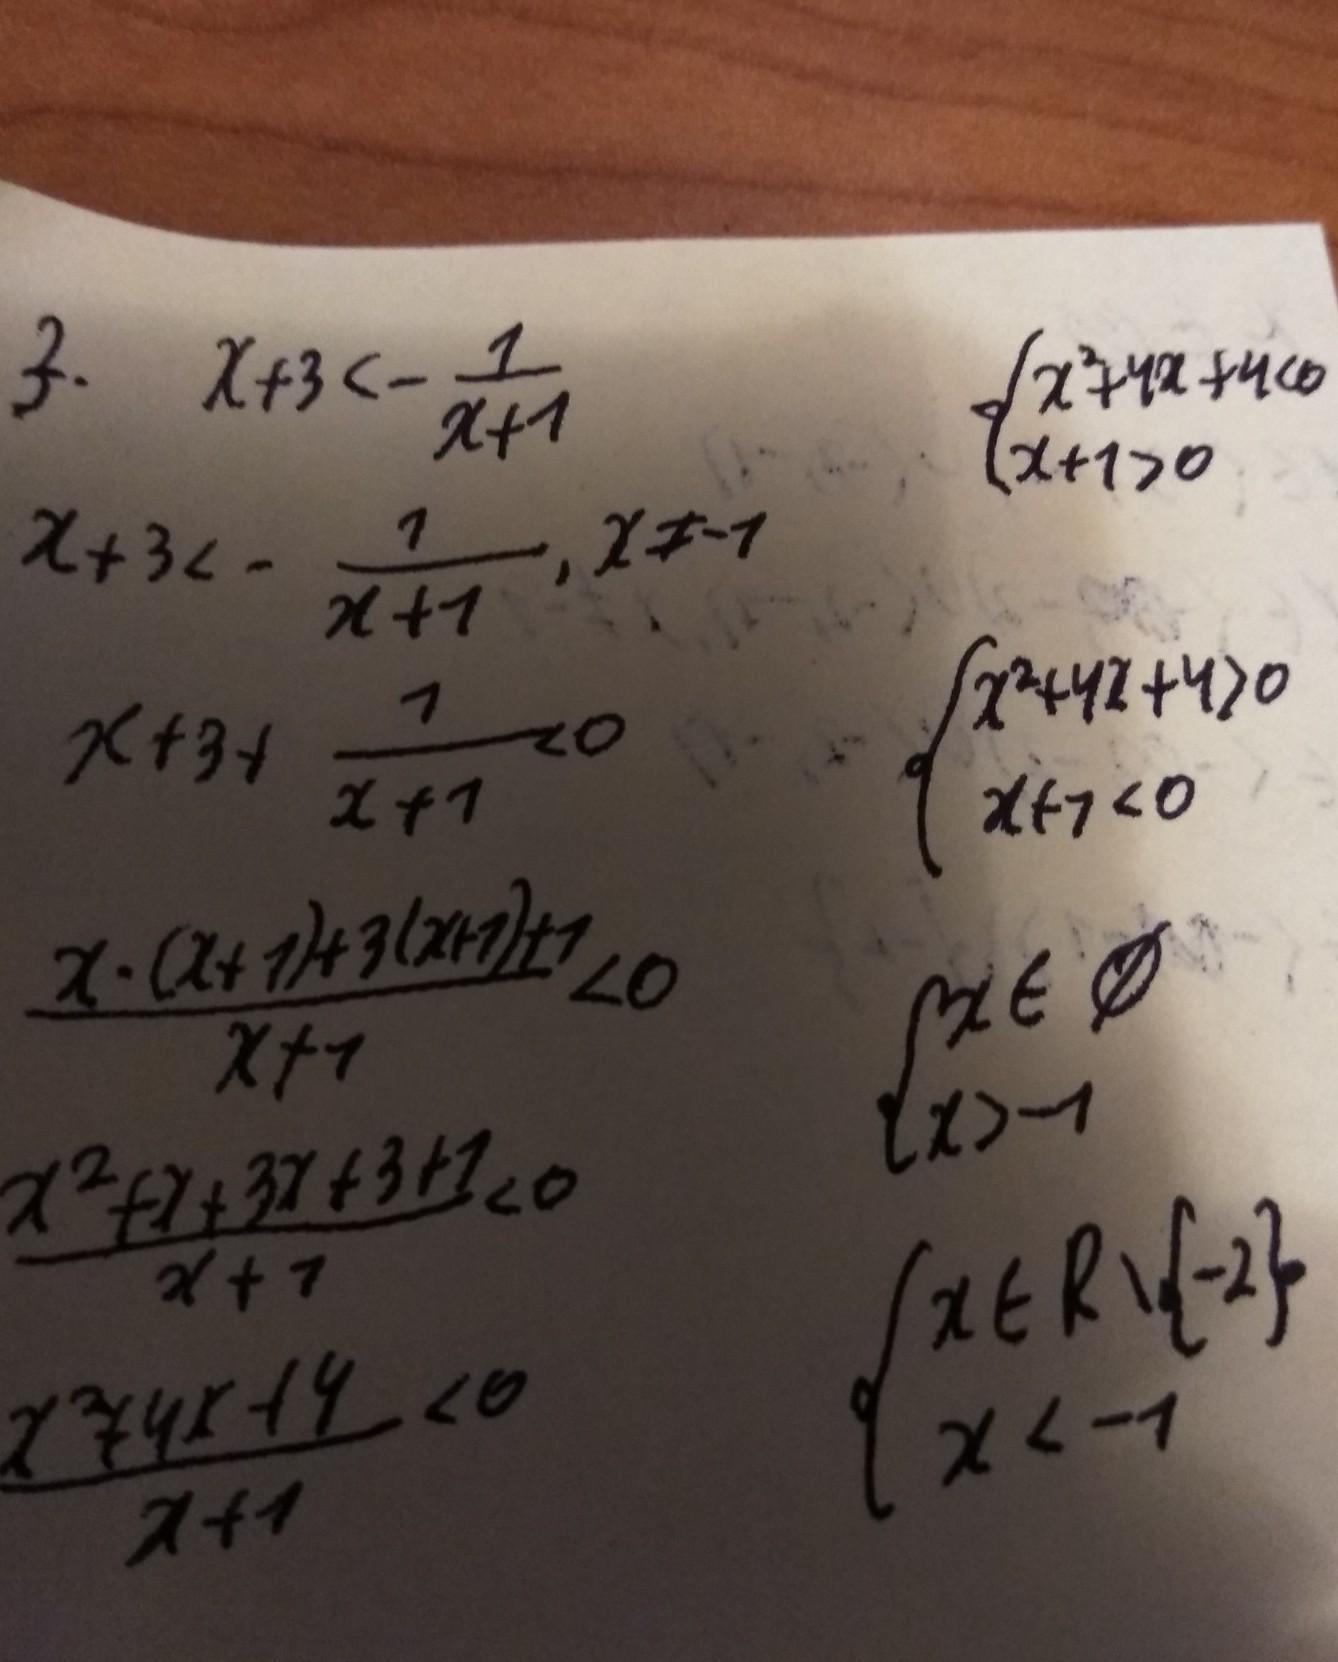 3. x+3<-1/(x+1)
x+3<-1/(x+1), x≠-1
x+3+1/(x+1)<0
(x·(x+1)+3(x+1)+1)/(x+1)<0
(x²+x+3x+3+1)/(x+1)<0
(x²+4x+4)/(x+1)<0
{x²+4x+4<0
x+1>0
{x²+4x+4>0
x+1<0
{x∈∅
x>-1
{x∈R\{-2}
x<-1